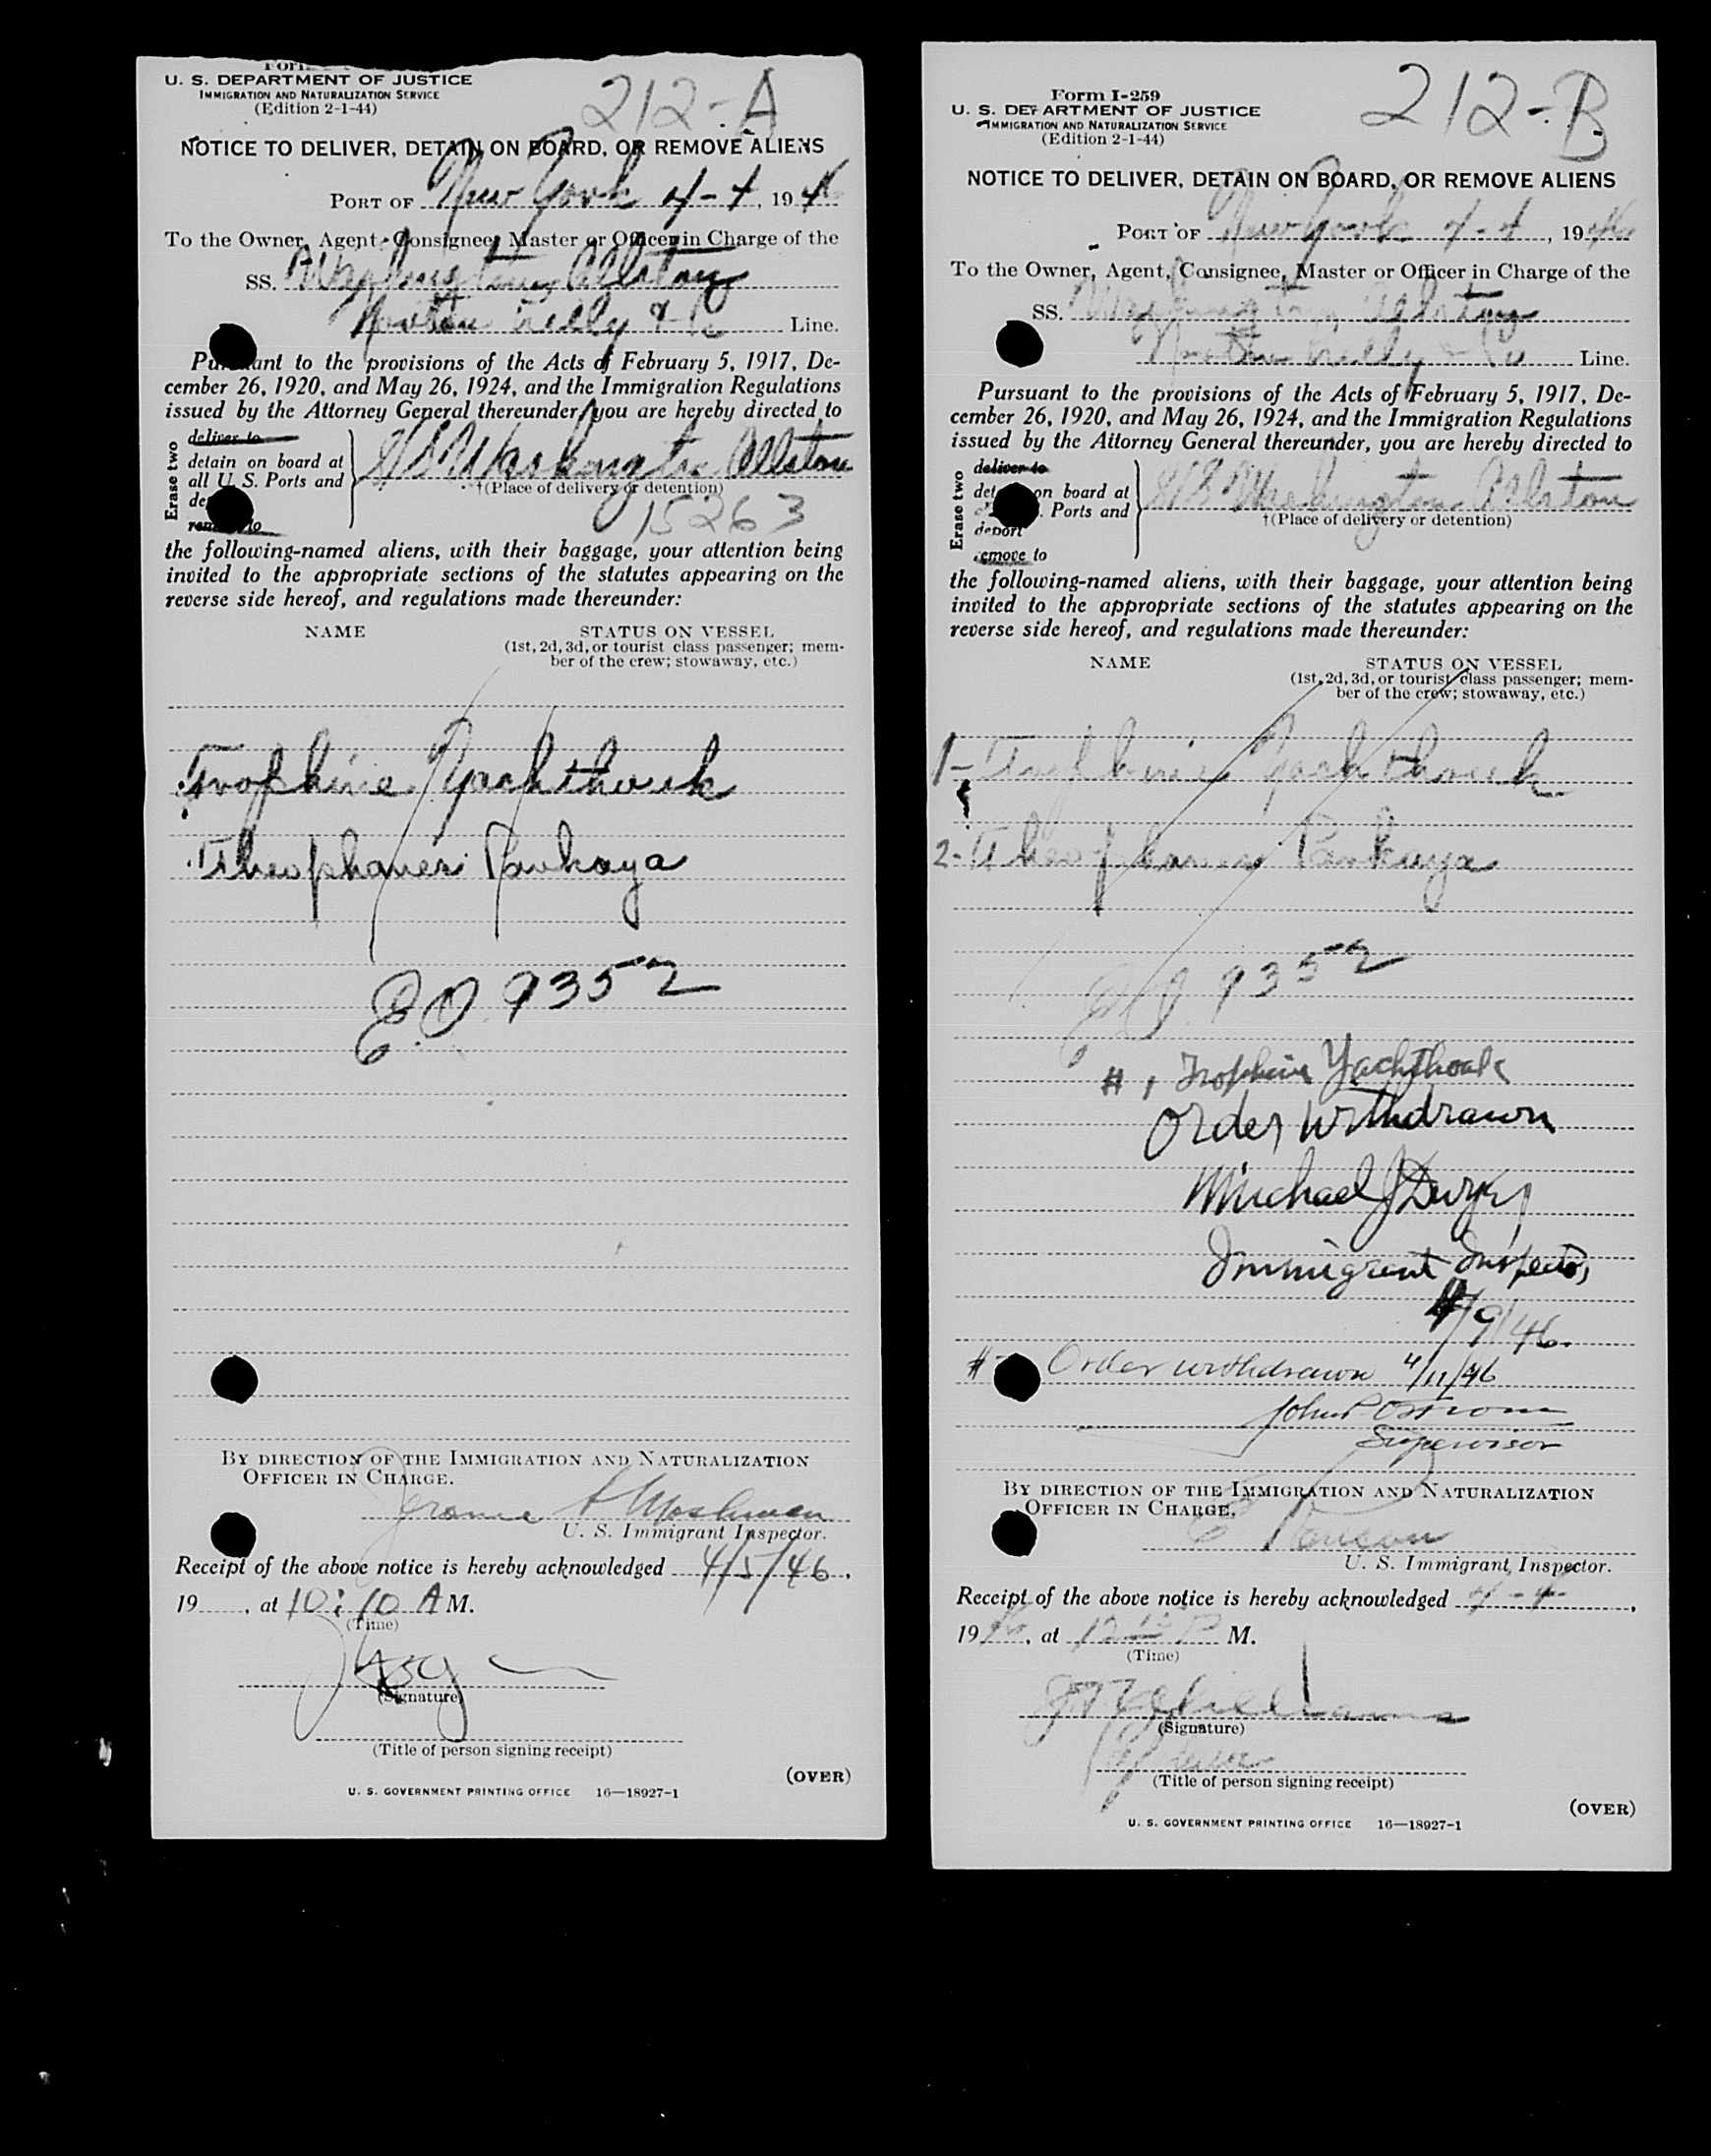 U. S. DEPARTMENT OF JUSTICE
IMMIGRATION AND NATURALIZATION SERVICE
(Edition 2-1-44)
212-A
NOTICE TO DELIVER, DETAIN ON BOARD, OR REMOVE ALIENS
PORT OF New York 4-4, 1946
To the Owner, Agent, Consignee, Master or Officer in Charge of the
SS. Washington Allston
Norton Lilly & Co Line.
Pursuant to the provisions of the Acts of February 5, 1917, De-
cember 26, 1920, and May 26, 1924, and the Immigration Regulations
issued by the Attorney General thereunder, you are hereby directed to
Erase two
deliver to
detain on board at
all U. S. Ports and
de
remove to
S/S Washington Allston
†(Place of delivery or detention)
15263
the following-named aliens, with their baggage, your attention being
invited to the appropriate sections of the statutes appearing on the
reverse side hereof, and regulations made thereunder:
NAME STATUS ON VESSEL
(1st, 2d, 3d, or tourist class passenger; mem-
ber of the crew; stowaway, etc.)
Trophine Yachthouk
Theophanes Pankaya
E.O. 9352
BY DIRECTION OF THE IMMIGRATION AND NATURALIZATION
OFFICER IN CHARGE.
Jerome
U. S. Immigrant Inspector.
Receipt of the above notice is hereby acknowledged 4/5/46.
19 , at 10:10 A M.
(Time)
(Signature)
(Title of person signing receipt)
(OVER)
U. S. GOVERNMENT PRINTING OFFICE 16—18927-1
Form I-259
U. S. DEPARTMENT OF JUSTICE
IMMIGRATION AND NATURALIZATION SERVICE
(Edition 2-1-44)
212-B
NOTICE TO DELIVER, DETAIN ON BOARD, OR REMOVE ALIENS
PORT OF New York 4-4, 1946
To the Owner, Agent, Consignee, Master or Officer in Charge of the
SS. Washington Allston
Norton Lilly & Co Line.
Pursuant to the provisions of the Acts of February 5, 1917, De-
cember 26, 1920, and May 26, 1924, and the Immigration Regulations
issued by the Attorney General thereunder, you are hereby directed to
Erase two
deliver to
det on board at
. Ports and
deport
remove to
S/S Washington Allston
†(Place of delivery or detention)
the following-named aliens, with their baggage, your attention being
invited to the appropriate sections of the statutes appearing on the
reverse side hereof, and regulations made thereunder:
NAME STATUS ON VESSEL
(1st, 2d, 3d, or tourist class passenger; mem-
ber of the crew; stowaway, etc.)
1- Trophine Yachthouk
2- Theophanes Pankaya
E.O. 9352
# 1 Trophine Yachthouk
Order Withdrawn
Michael J Dwyer
Immigrant Inspector
4/9/46.
# Order withdrawn 4/11/46
John P. Ostrom
Supervisor
BY DIRECTION OF THE IMMIGRATION AND NATURALIZATION
OFFICER IN CHARGE.
U. S. Immigrant Inspector.
Receipt of the above notice is hereby acknowledged 4-4-,
1946, at 12 P M.
(Time)
Williams
(Signature)
(Title of person signing receipt)
(OVER)
U. S. GOVERNMENT PRINTING OFFICE 16—18927-1